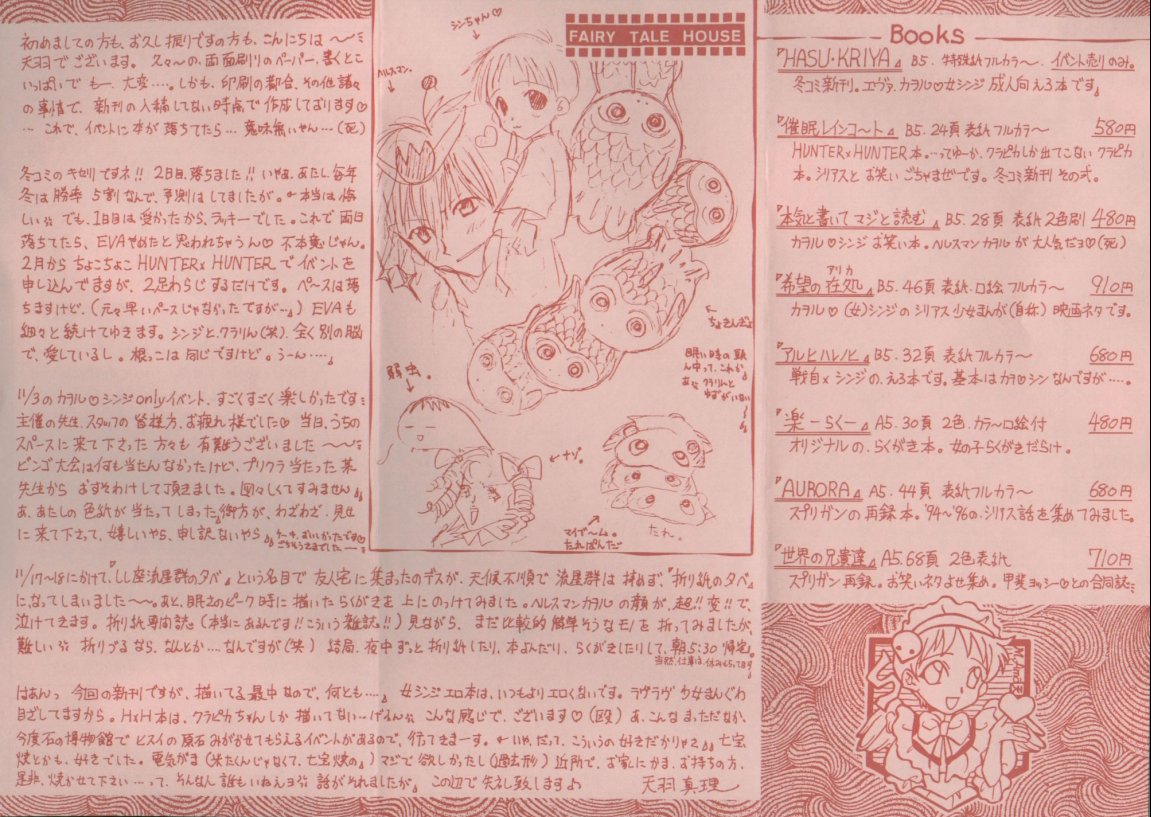 初めましての方も、お久し振りですの方も、こんにちは〜〜
天羽でございます。久々〜の、両面刷りのペーパー、書くとこ
いっぱいで も一 大変‥‥。しかも、印刷の都合、その他諸々
の事情で、新刊の入稿してない時点で作成しております♡
… これで、イベントに本が落ちてたら… 意味無いやん…(死)
冬コミのキセリですネ!! 2日目、落ちました!! いやぁ、あたし、毎年
冬は勝率5割なんで、予測はしてましたが。←本当は悔
しい でも、1日目は受かったから、ラッキーでした。これで両日
落ちてたら、EVAやめたと思われちゃうん♡ 不本意じゃん。
2月からちょこちょこ HUNTER×HUNTERでイベントを
申し込んでますが、2足わらじするだけです。ペースは落
ちますけど、(元々早いペースじゃなかったですが…)EVAも
細々と続けてゆきます。シンジと、クラりん(笑)、全く別の脳
で、愛しているし。根っこは同じですけど。うーん‥‥
11/3のカヲル♡シンジonlyイベント、すごくすごく楽しかったです
主催の先生、スタッフの皆様方、お疲れ様でした♡ 当日、うちの
スペースに来て下さった方々も 有難うございました〜〜
ビンゴ大会は何も当たんなかったけど、プリクラ当たった某
先生から おすそわけして頂きました。図々しくてすみません
あ、あたしの色紙が当たってしまった御方が、わざわざ、見せ
に来て下さって、嬉しいやら、申し訳ないやら
ケーキ、おいしかったです♡
ごちそうさまでした〜
11/17〜18にかけて、『しし座流星群の夕べ』という名目で友人宅に集まったのデスが、天候不順で流星群は拝めず、『折り紙の夕べ』
になってしまいました〜〜。あと、眠さのピーク時に描いたらくがきを上にのっけてみました。ヘルスマンカヲルの顔が、超!!変!!で、
泣けてきます。折り紙専門誌(本当にあるんです!!こういう雑誌!!)見ながら、まだ比較的簡単そうなモノを折ってみましたが、
難しい 折りづるなら、なんとか‥‥なんですが(笑) 結局、夜中ずっと折り紙したり、本よんだり、らくがきしたりして、朝5:30帰宅。
当然、仕事は、休み
はあんっ 今回の新刊ですが、描いてる最中なので、何とも‥‥。 女シンジエロ本は、いつもよりエロくないです。ラヴラヴ少女まんぐわ
目ざしてますから。H×H本は、クラピカちゃんしか描いてない… こんな感じで、ございます♡(殴) あ、こんなまっただなか、
今度石の博物館でヒスイの原石みがかせてもらえるイベントがあるので、行てきまーす。←いや、だって、こういうの好きだかりゃさ 七宝
焼とかも、好きでした。電気がま(米たくんじゃなくて、七宝焼の)マジで欲しかたし(過去形) 近所で、お家にかま、お持ちの方、
是非、焼かせて下さい…って、そんなん誰もいねえヨ 話がそれましたが この辺で失礼致します♪ 天羽真理
シンちゃん♡
ヘルスマン。
FAIRY TALE HOUSE
眠い時の頭
ん中って、これか。
あ クラリんと
ゆずがいない
弱虫。
←ナゾ。
マイブーム。
たれぱんだ
たれ。
Books
『HASU・KRIYA』 B5. 特殊紙フルカラ〜. イベント売りのみ。
冬コミ新刊。エヴァ. カヲル♡女シンジ 成人向えろ本です。
『催眠レインコ〜ト』 B5. 24頁 表紙フルカラ〜 580円
HUNTER×HUNTER本。…ってゆーか、クラピカしか出てこない クラピカ
本。シリアスと お笑い ごちゃまぜです。冬コミ新刊 その弐。
『本気と書いて マジと読む』 B5. 28頁 表紙2色刷 480円
カヲル♡シンジお笑い本。ヘルスマンカヲルが 大人気だヨ♡(死)
『希望の在処』 B5. 46頁 表紙.口絵 フルカラ〜 910円
アリカ
カヲル♡(女)シンジの シリアス少女まんが(自称) 映画ネタです。
『アルヒハレノヒ』 B5. 32頁 表紙フルカラ〜 680円
戦自×シンジの、えろ本です。基本はカヲ♡シンなんですが‥‥。
『楽 ーらくー』 A5. 30頁 2色.カラ〜口絵付 480円
オリジナルの、らくがき本。女の子らくがきだらけ。
『AURORA』 A5. 44頁 表紙フルカラ〜 680円
スプリガンの再録本。'94〜'96の、シリアス話を集めてみました。
『世界の兄貴達』 A5. 68頁 2色表紙 710円
スプリガン 再録。お笑いネタよせ集め。甲斐ヨッシー♡との合同誌